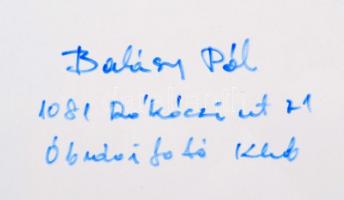 Balásy Pál
1081 Rákóczi út 21
Óbudai fotó Klub